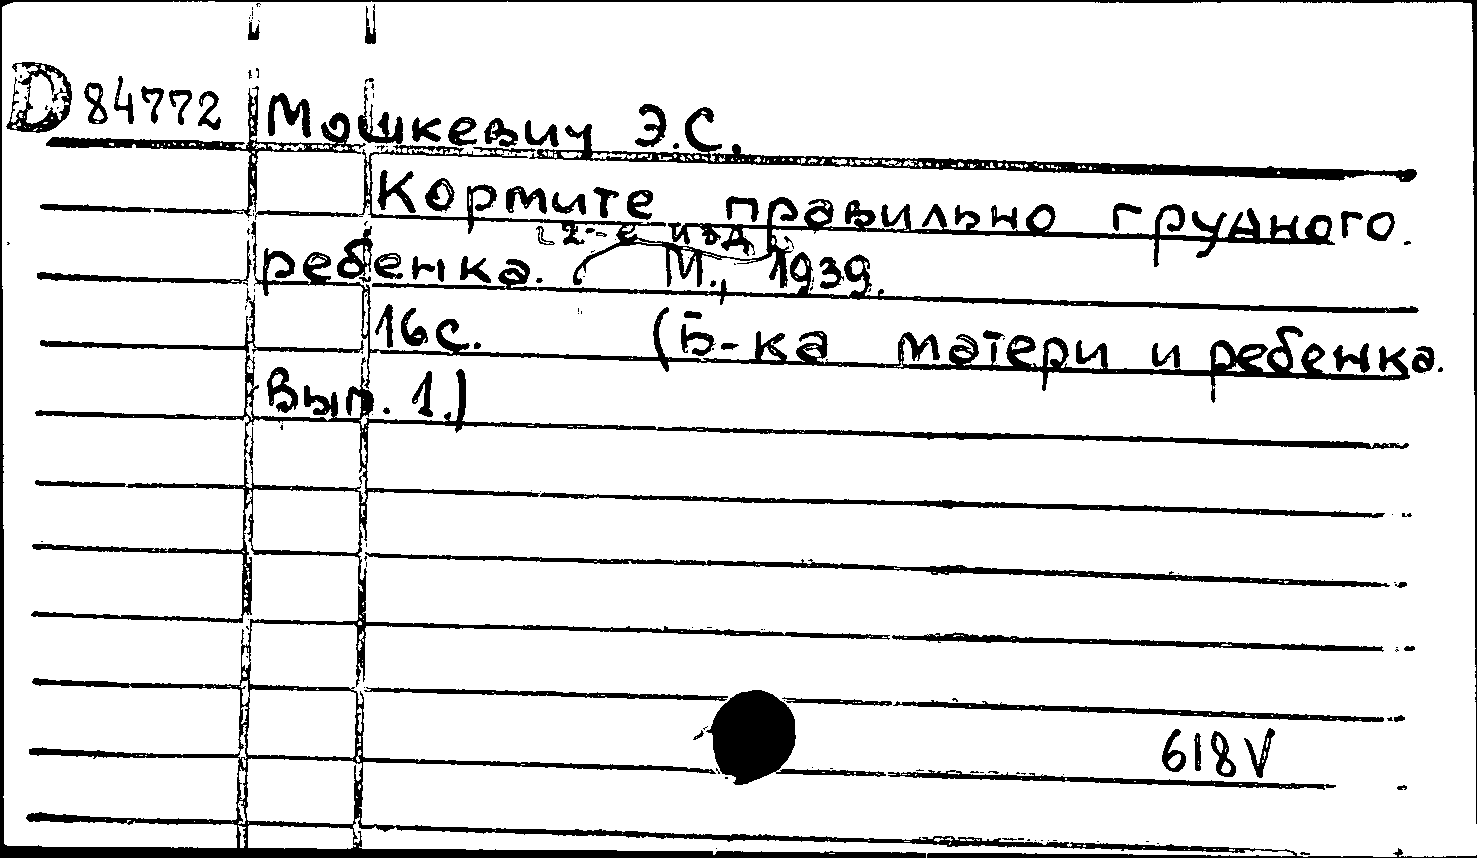 D 84772 Мошкевич Э.С.
Кормите правильно грудного
2-е изд
ребенка. М., 1939.
16с. (Б-ка матери и ребенка.
Вып. 1.)
618V